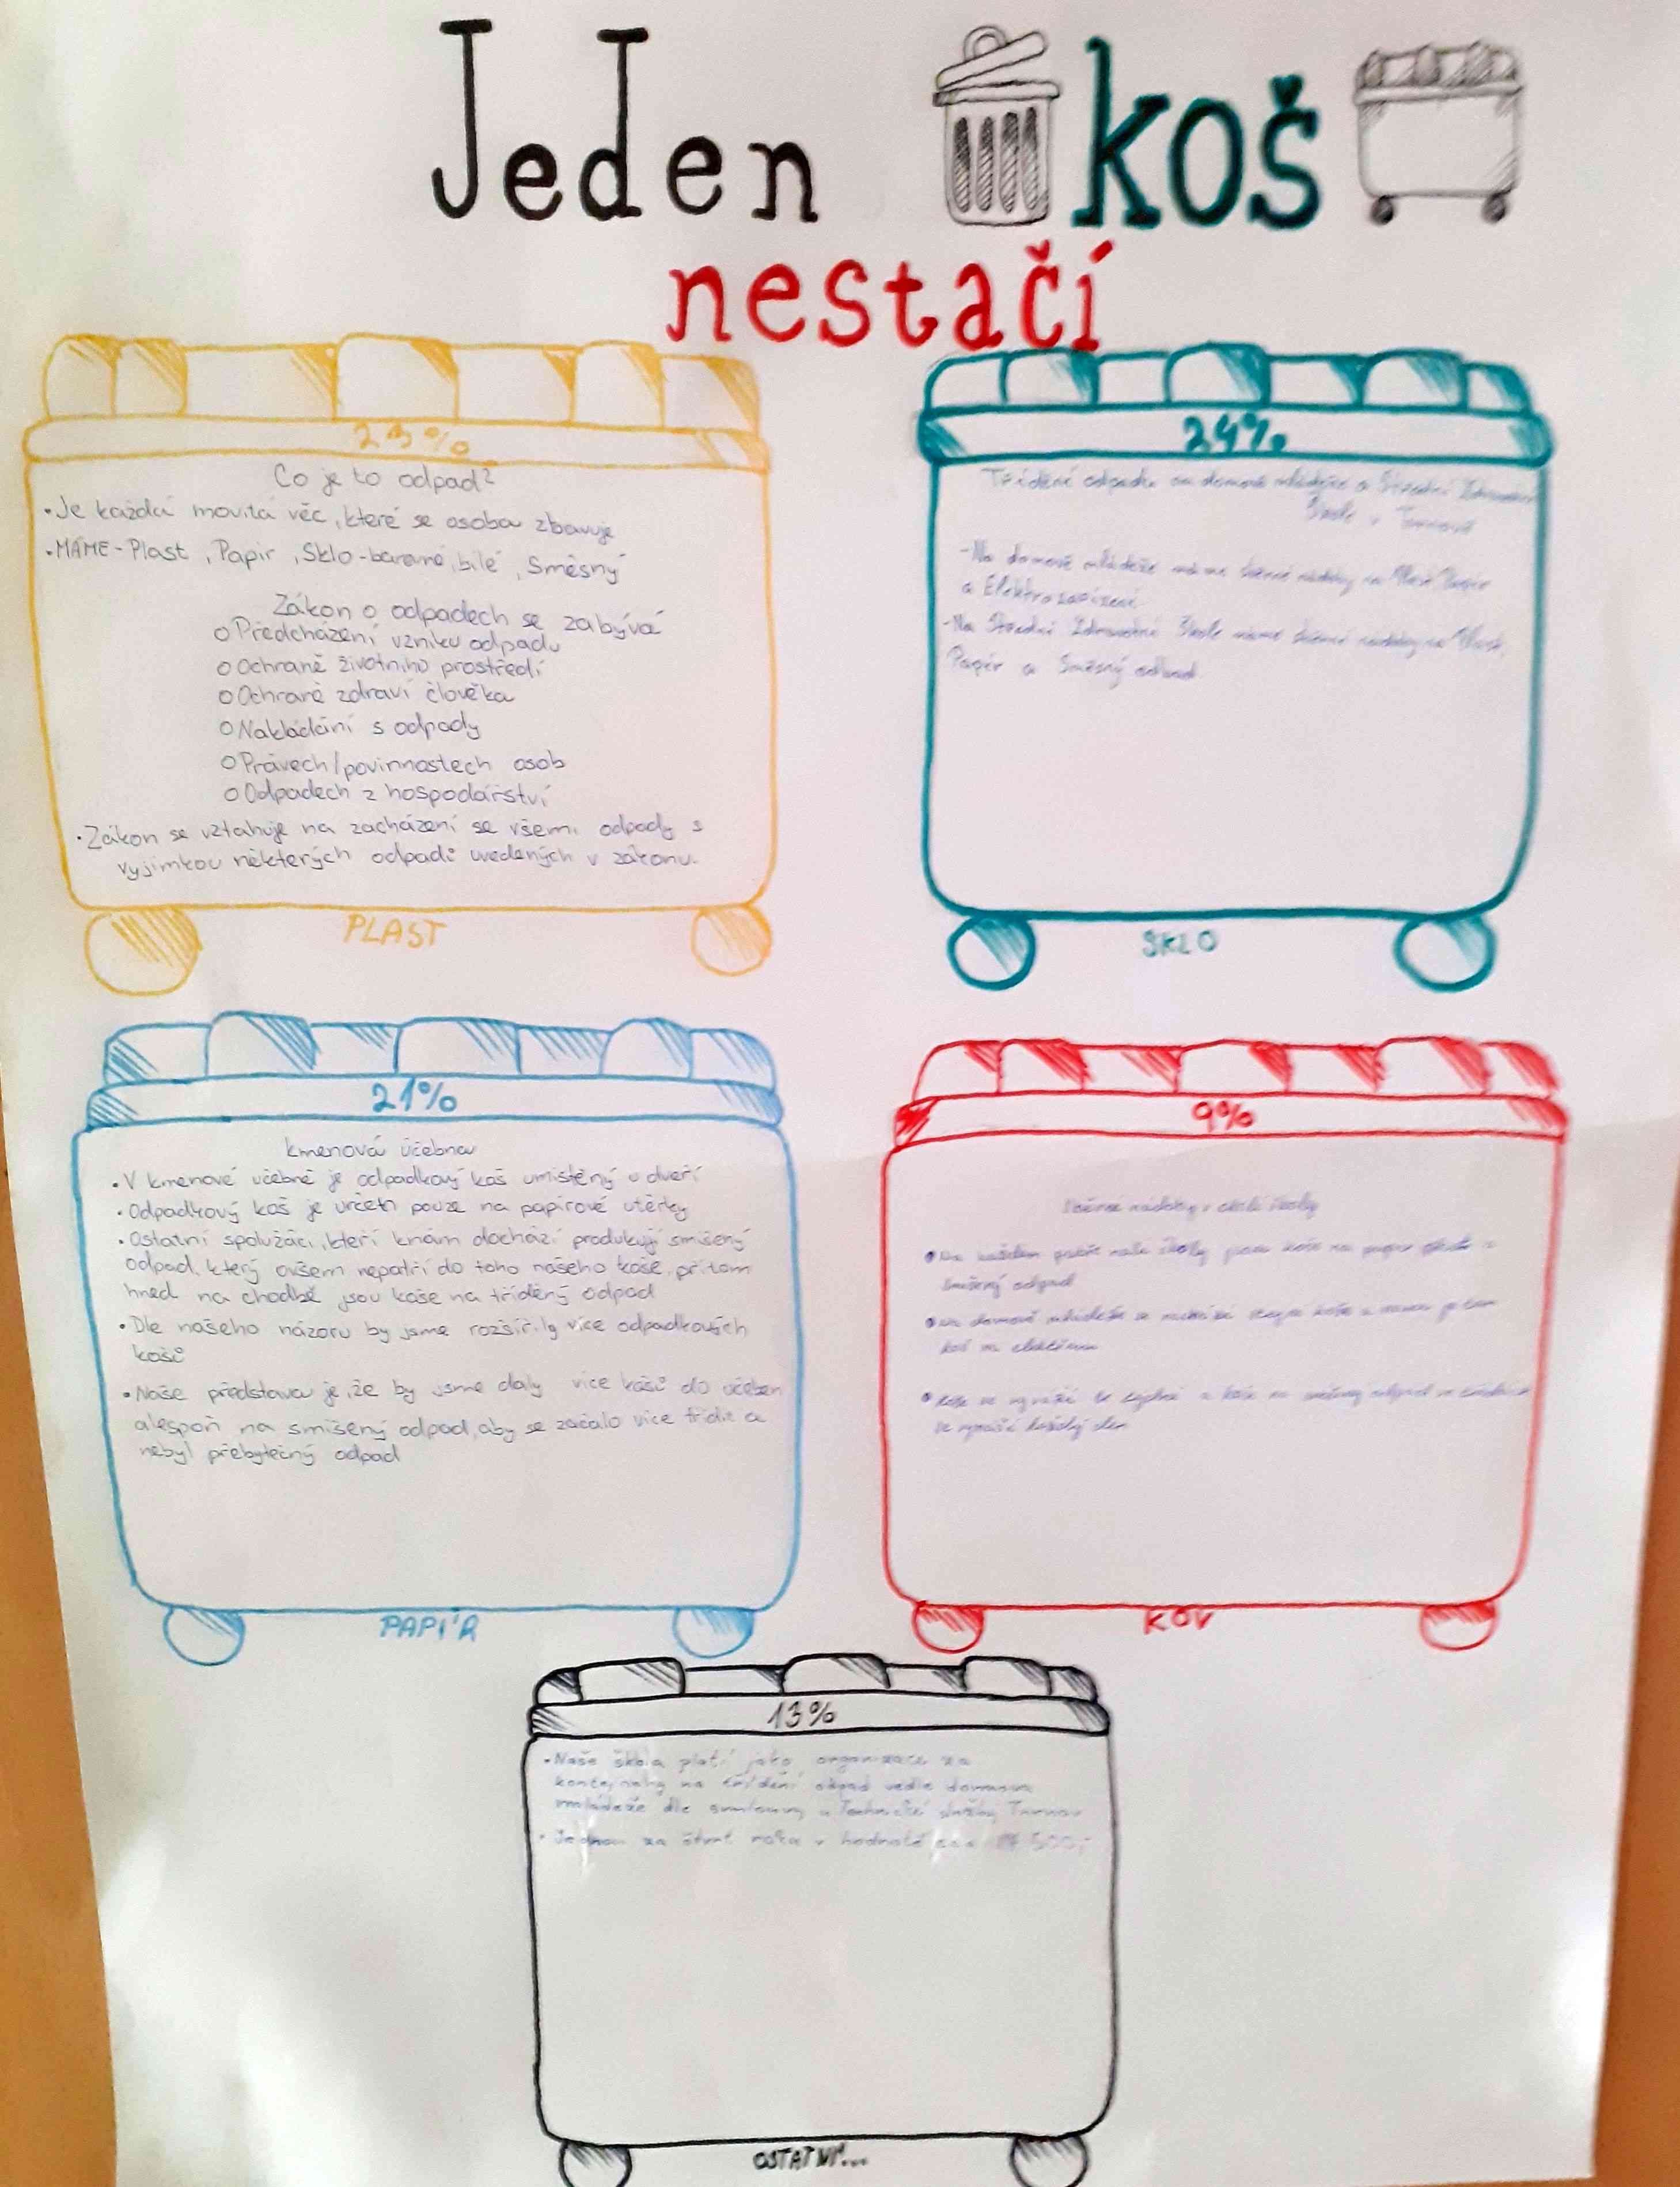 Jeden koš
nestačí
23%
Co je to odpad?
•Je každá movitá věc, které se osoba zbavuje
•MÁME-Plast, Papír, Sklo-barevné, bílé, Směsný
Zákon o odpadech se zabývá
○Předcházení vzniku odpadu
○Ochraně životního prostředí
○Ochraně zdraví člověka
○Nakládání s odpady
○Právech/povinnostech osob
○Odpadech z hospodářství
•Zákon se vztahuje na zacházení se všemi odpady s
vyjímkou některých odpadů uvedených v zákonu.
PLAST
24%
Třídění odpadu na domově mládeže a Střední Zdravotní
Škole v Turnově
-Na domově mládeže máme sběrné nádoby na Plast Papír
a Elektrozařízení
-Na Střední Zdravotní Škole máme sběrné nádoby na Plast,
Papír a Směsný odpad
SKLO
21%
kmenová učebna
•V kmenové učebně je odpadkový koš umístěný u dveří
•Odpadkový koš je určen pouze na papírové utěrky
•Ostatní spolužáci, kteří knám dochází produkují smíšený
odpad, který ovšem nepatří do toho našeho koše, přitom
hned na chodbě jsou koše na tříděný odpad
•Dle našeho názoru by jsme rozšířily více odpadkových
košů
•Naše představa je, že by jsme daly více košů do učeben
alespoň na smíšený odpad, aby se začalo více třídit a
nebyl přebytečný odpad
PAPÍR
9%
Sběrné nádoby v okolí školy
•Na každém patře naší školy jsou koše na papír
smíšený odpad
•Na domově mládeže se nachází stejné koše a navíc je tam
koš na
•koše se vyváží a koše na směsný odpad
se vyváší každý den
KOV
13%
•Naše škola platí jako organizace za
kontejnery na třídění odpad vedle domova
mládeže dle smlouvy u Technické služby Turnov
•Jednou za čtvrt roku v hodnotě cca
OSTATNÍ...